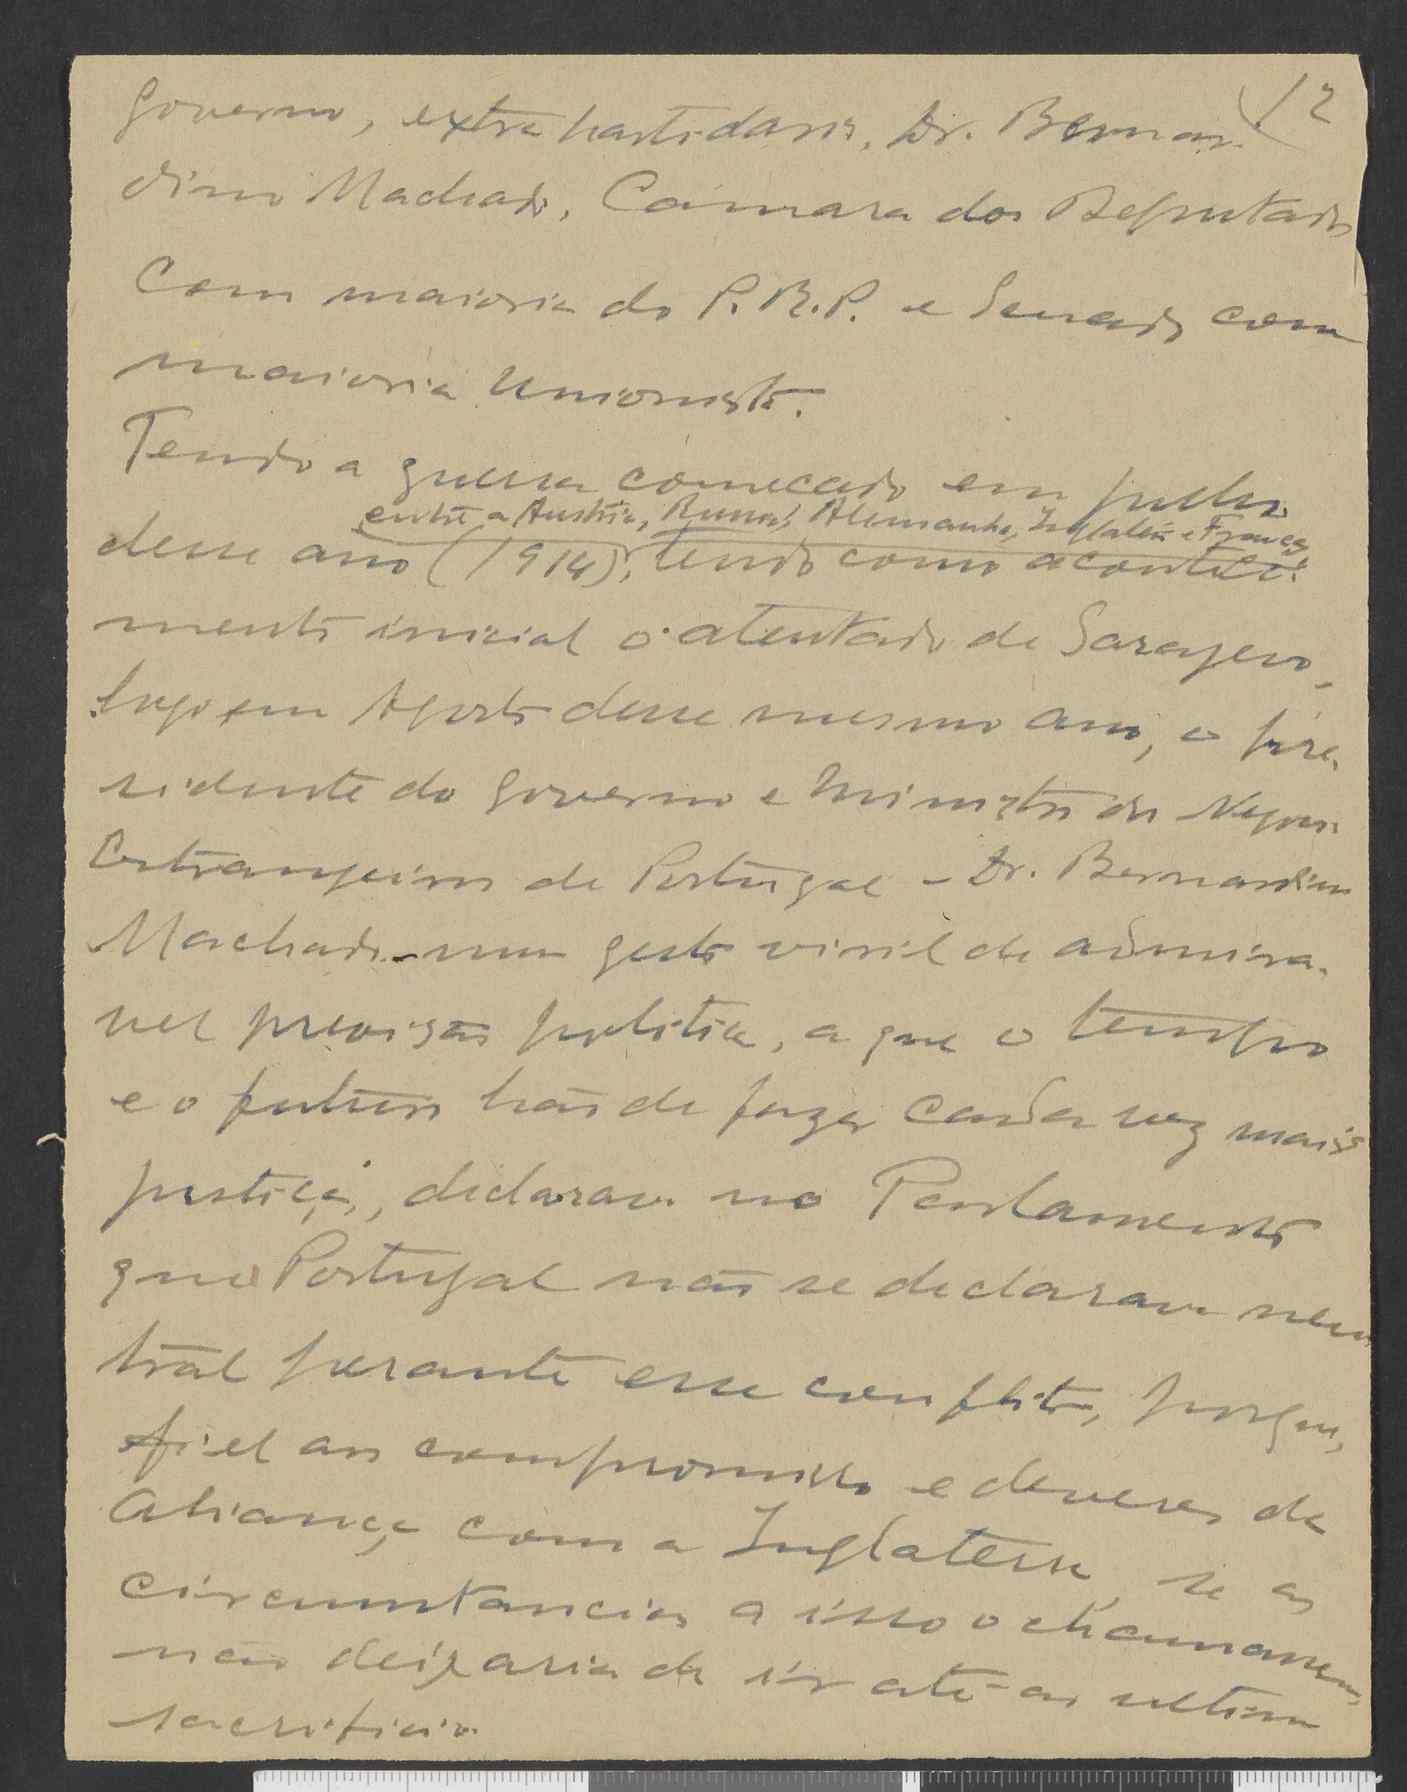 12
governo, extra partidario, Dr. Bernar-
dino Machado, Camara dos Deputados
com maioria do P.R.P. e Senado com
maioria Unionista.
Tendo a guerra começado em julho
entre a Austria, Russia, Alemanha, Inglaterra e França,
desse ano (1914), tendo como aconteci-
mento inicial o atentado de Sarajevo,
logo em Agosto desse mesmo ano, o pre-
sidente do governo e Ministro dos Negocios
Estrangeiros de Portugal - Dr. Bernardino
Machado - num gesto viril de admira-
vel previsão politica, a que o tempo
e o futuro hão de fazer cada vez mais
justiça, declarava no Parlamento
que Portugal não se declarava neu-
tral perante esse conflito, porque,
fiel aos compromissos e deveres da
Aliança com a Inglaterra, se as
circunstancias a isso o chamassem,
não deixaria de ir até ao ultimo
sacrificio.